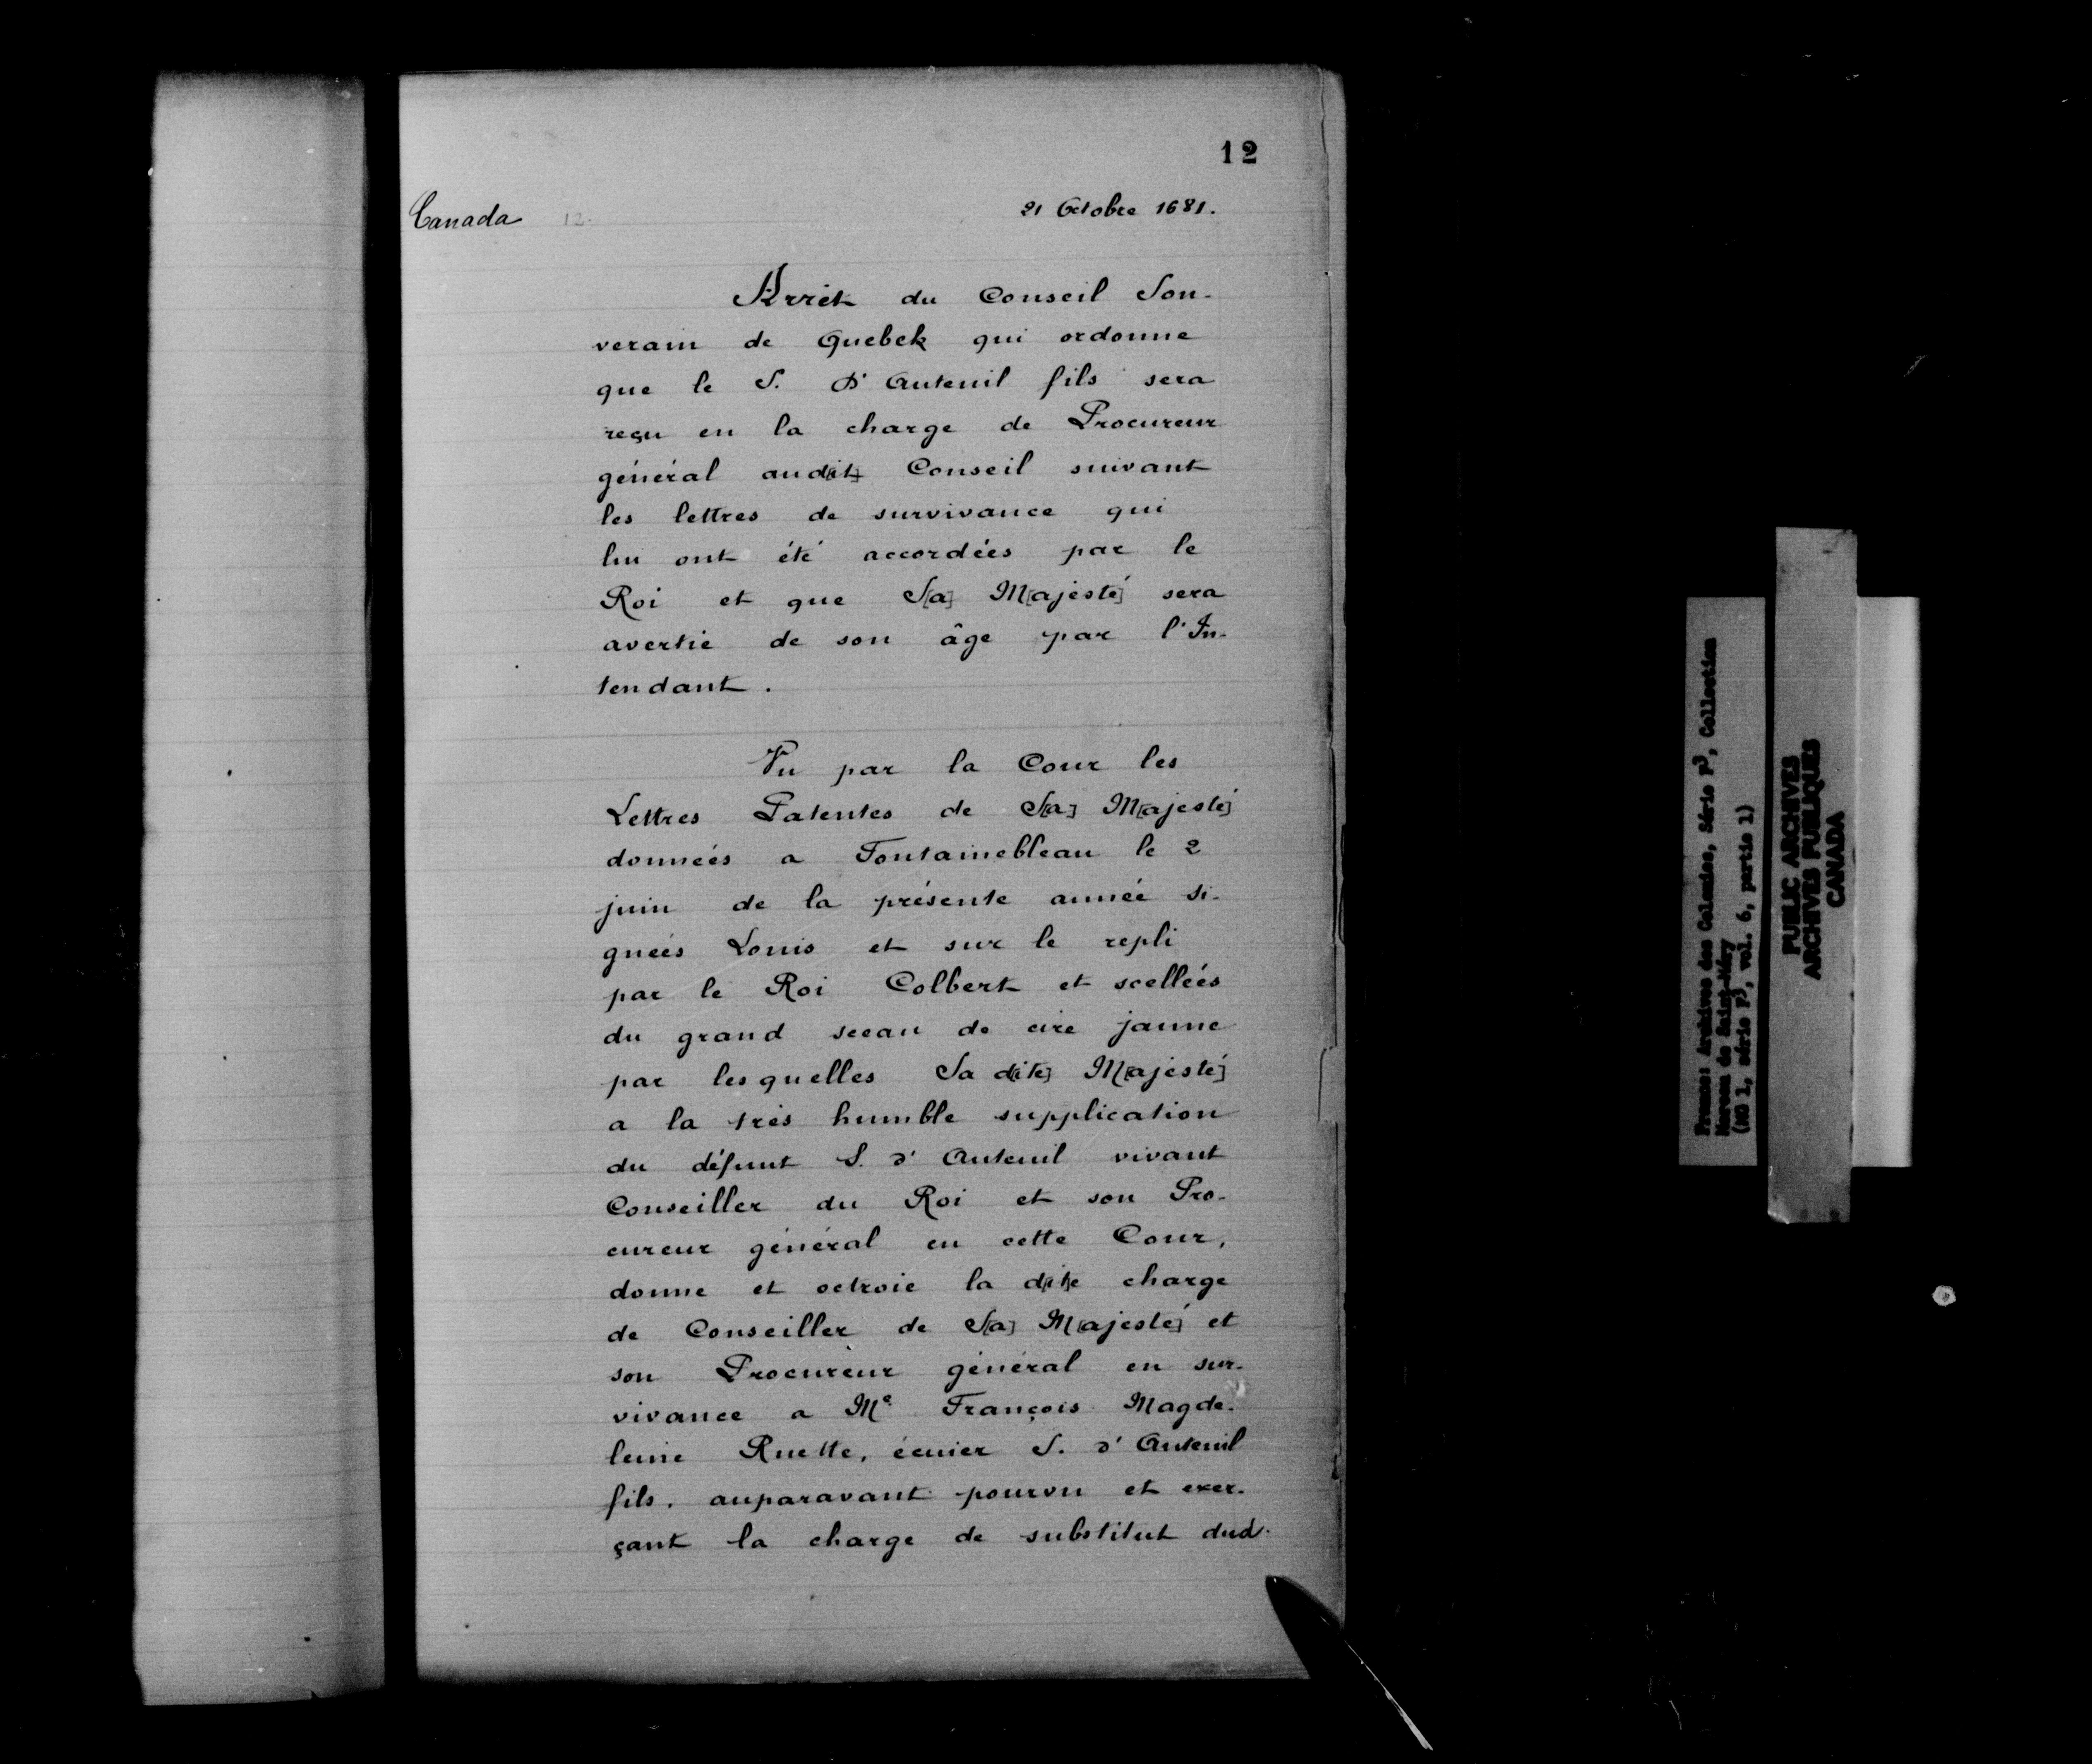 12
Canada 12. 21 Octobre 1681.
Arrêt du Conseil Sou-
verain de Quebek qui ordonne
que le S. D'Auteuil fils sera
reçu en la charge de Procureur
général aud[it] Conseil suivant
les lettres de survivance qui
lui ont été accordées par le
Roi et que S[a] M[ajesté] sera
avertie de son âge par l'In-
tendant.
Vu par la Cour les
Lettres Patentes de S[a] M[ajesté]
données a Fontainebleau le 2
juin de la présente année si-
gnées Louis et sur le repli
par le Roi Colbert et scellées
du grand sceau de cire jaune
par lesquelles Sa d[ite] M[ajesté]
a la très humble supplication
du défunt S. d'Auteuil vivant
Conseiller du Roi et son Pro-
cureur général en cette Cour,
donne et octroie la d[it]e charge
de Conseiller de S[a] M[ajesté] et
son Procureur général en sur-
vivance a Me François Magde-
leine Ruette, écuier S. d'Auteuil
fils, auparavant pourvu et exer-
çant la charge de substitut dud.
France: Archives des Colonies, Série F3, Collection
Moreau de Saint-Méry
(MG 1, série F3, vol. 6, partie 1)
PUBLIC ARCHIVES
ARCHIVES PUBLIQUES
CANADA